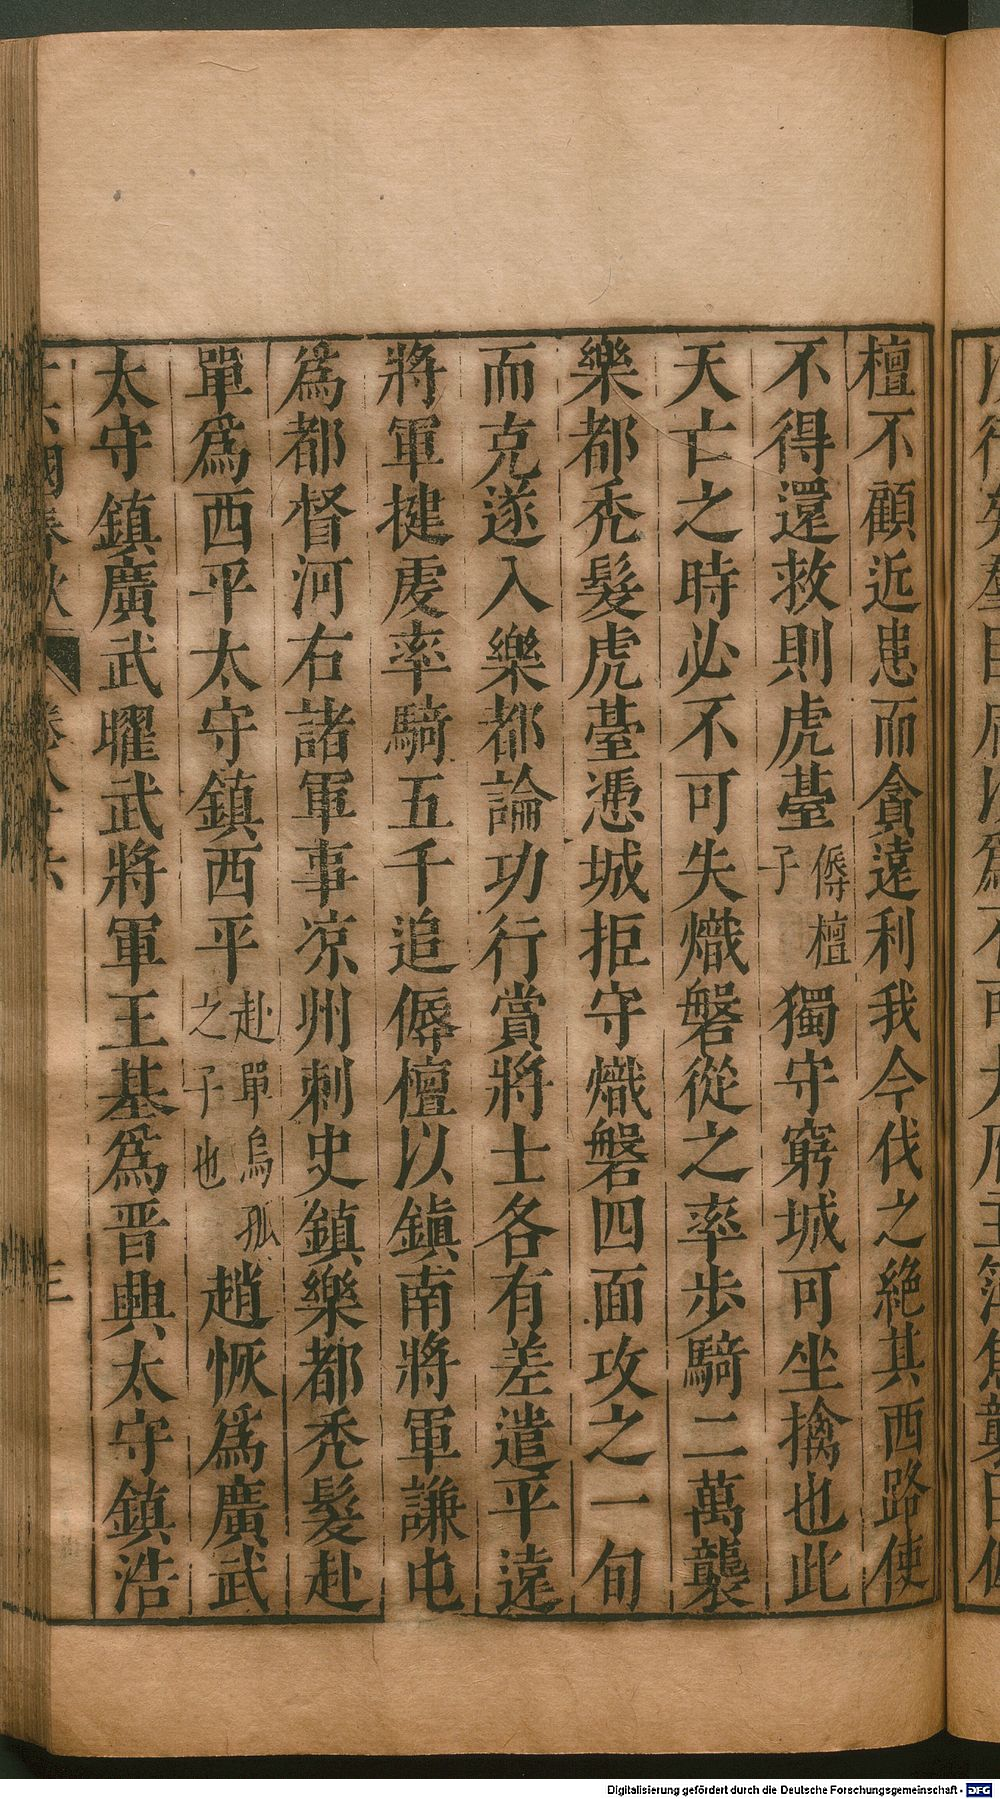 檀不顧近患而貪遠利我今伐之絕其西路使
不得還救則虎臺傉檀子獨守窮城可坐擒也此
天亡之時必不可失熾磐從之率步騎二萬襲
樂都禿髮虎臺憑城拒守熾磐四面攻之一旬
而克遂入樂都論功行賞將士各有差遣平遠
將軍揵虔率騎五千追傉檀以鎮南將軍謙屯
爲都督河右諸軍事凉州刺史鎮樂都禿髮赴
單爲西平太守鎮西平赴單烏孤之子也趙恢爲廣武
太守鎮廣武曜武將軍王基爲晉興太守鎮浩
十六國春秋 卷八十六 三
Digitalisierung gefördert durch die Deutsche Forschungsgemeinschaft - DFG